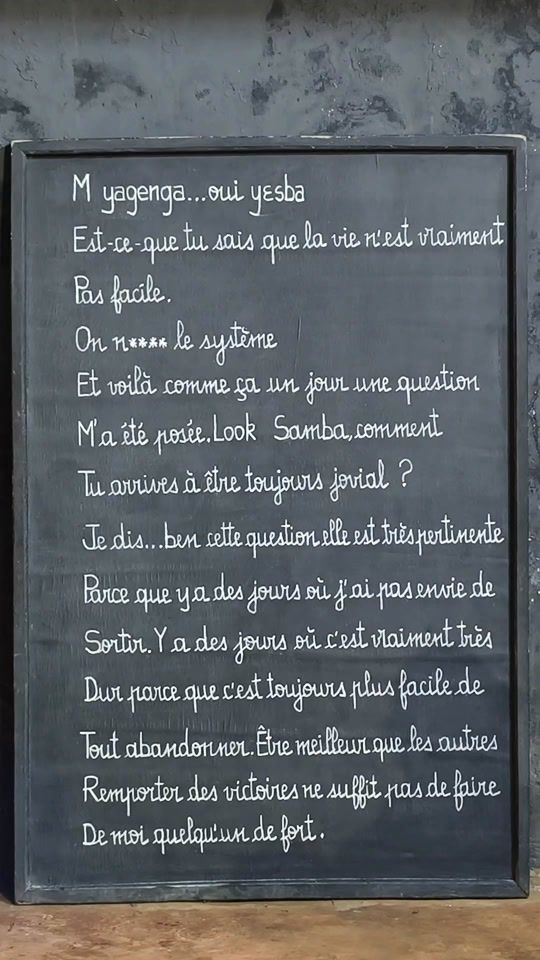 M yagenga...oui yɛsba
Est-ce-que tu sais que la vie n'est vraiment
Pas facile.
On n**** le système
Et voilà comme ça un jour une question
M'a été posée.Look Samba,comment
Tu arrives à être toujours jovial ?
Je dis...ben cette question elle est très pertinente
Parce que y a des jours où j'ai pas envie de
Sortir. Y a des jours où c'est vraiment très
Dur parce que c'est toujours plus facile de
Tout abandonner. Être meilleur que les autres
Remporter des victoires ne suffit pas de faire
De moi quelqu'un de fort.